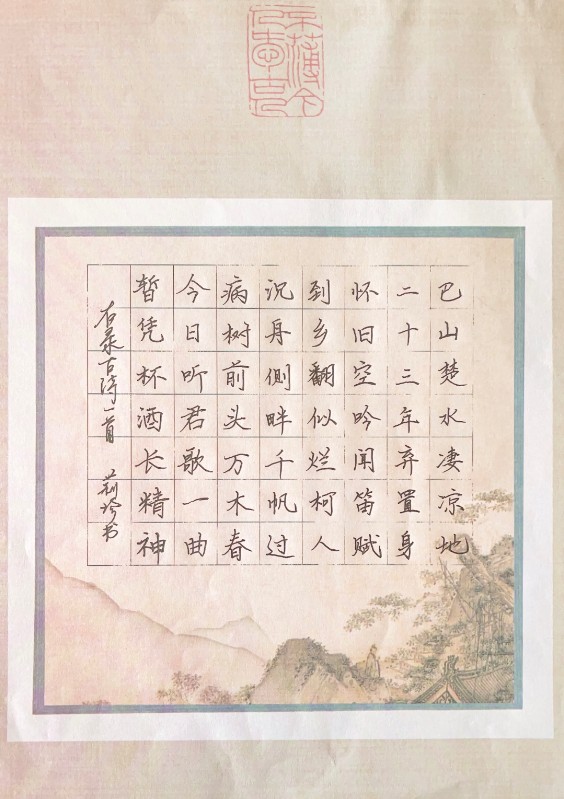 巴山楚水凄凉地
二十三年弃置身
怀旧空吟闻笛赋
到乡翻似烂柯人
沉舟侧畔千帆过
病树前头万木春
今日听君歌一曲
暂凭杯酒长精神
右录古诗一首 莉玲书